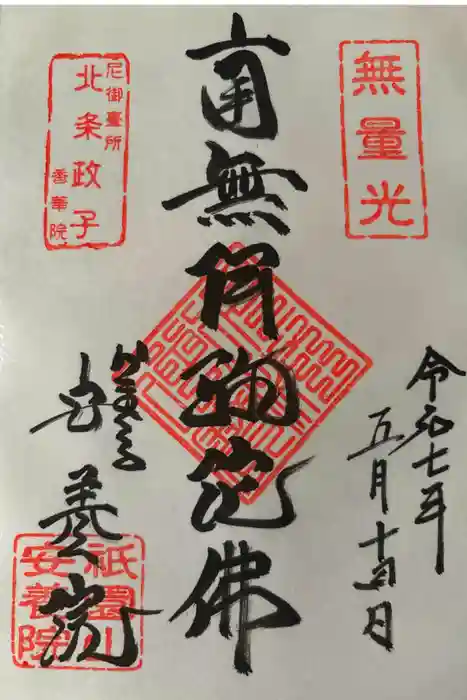 無量光
令和七年
五月十四日
南無阿彌陀佛
尼御臺所
北条政子
香華院
安養院
祇園山
安養院